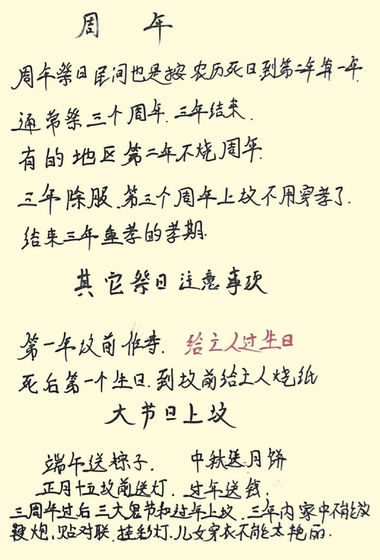 周年
周年祭日民间也是按农历死日到第二年算一年
通常祭三个周年.三年结束.
有的地区第二年不烧周年.
三年除服.第三个周年上坟不用穿孝了.
结束三年重孝的孝期.
其它祭日注意事项
第一年坟前作寿. 给主人过生日
死后第一个生日.到坟前给主人烧纸
大节日上坟
端午送粽子. 中秋送月饼
正月十五坟前送灯. 过年送钱.
三周年过后三大鬼节和过年上坟.三年内家中不能放
鞭炮.贴对联.挂彩灯.儿女穿衣不能太艳丽.